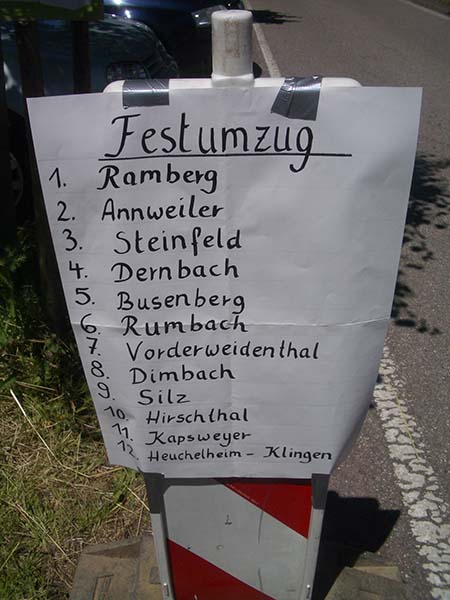 Festumzug
1. Ramberg
2. Annweiler
3. Steinfeld
4. Dernbach
5. Busenberg
6. Rumbach
7. Vorderweidenthal
8. Dimbach
9. Silz
10. Hirschthal
11. Kapsweyer
12. Heuchelheim - Klingen